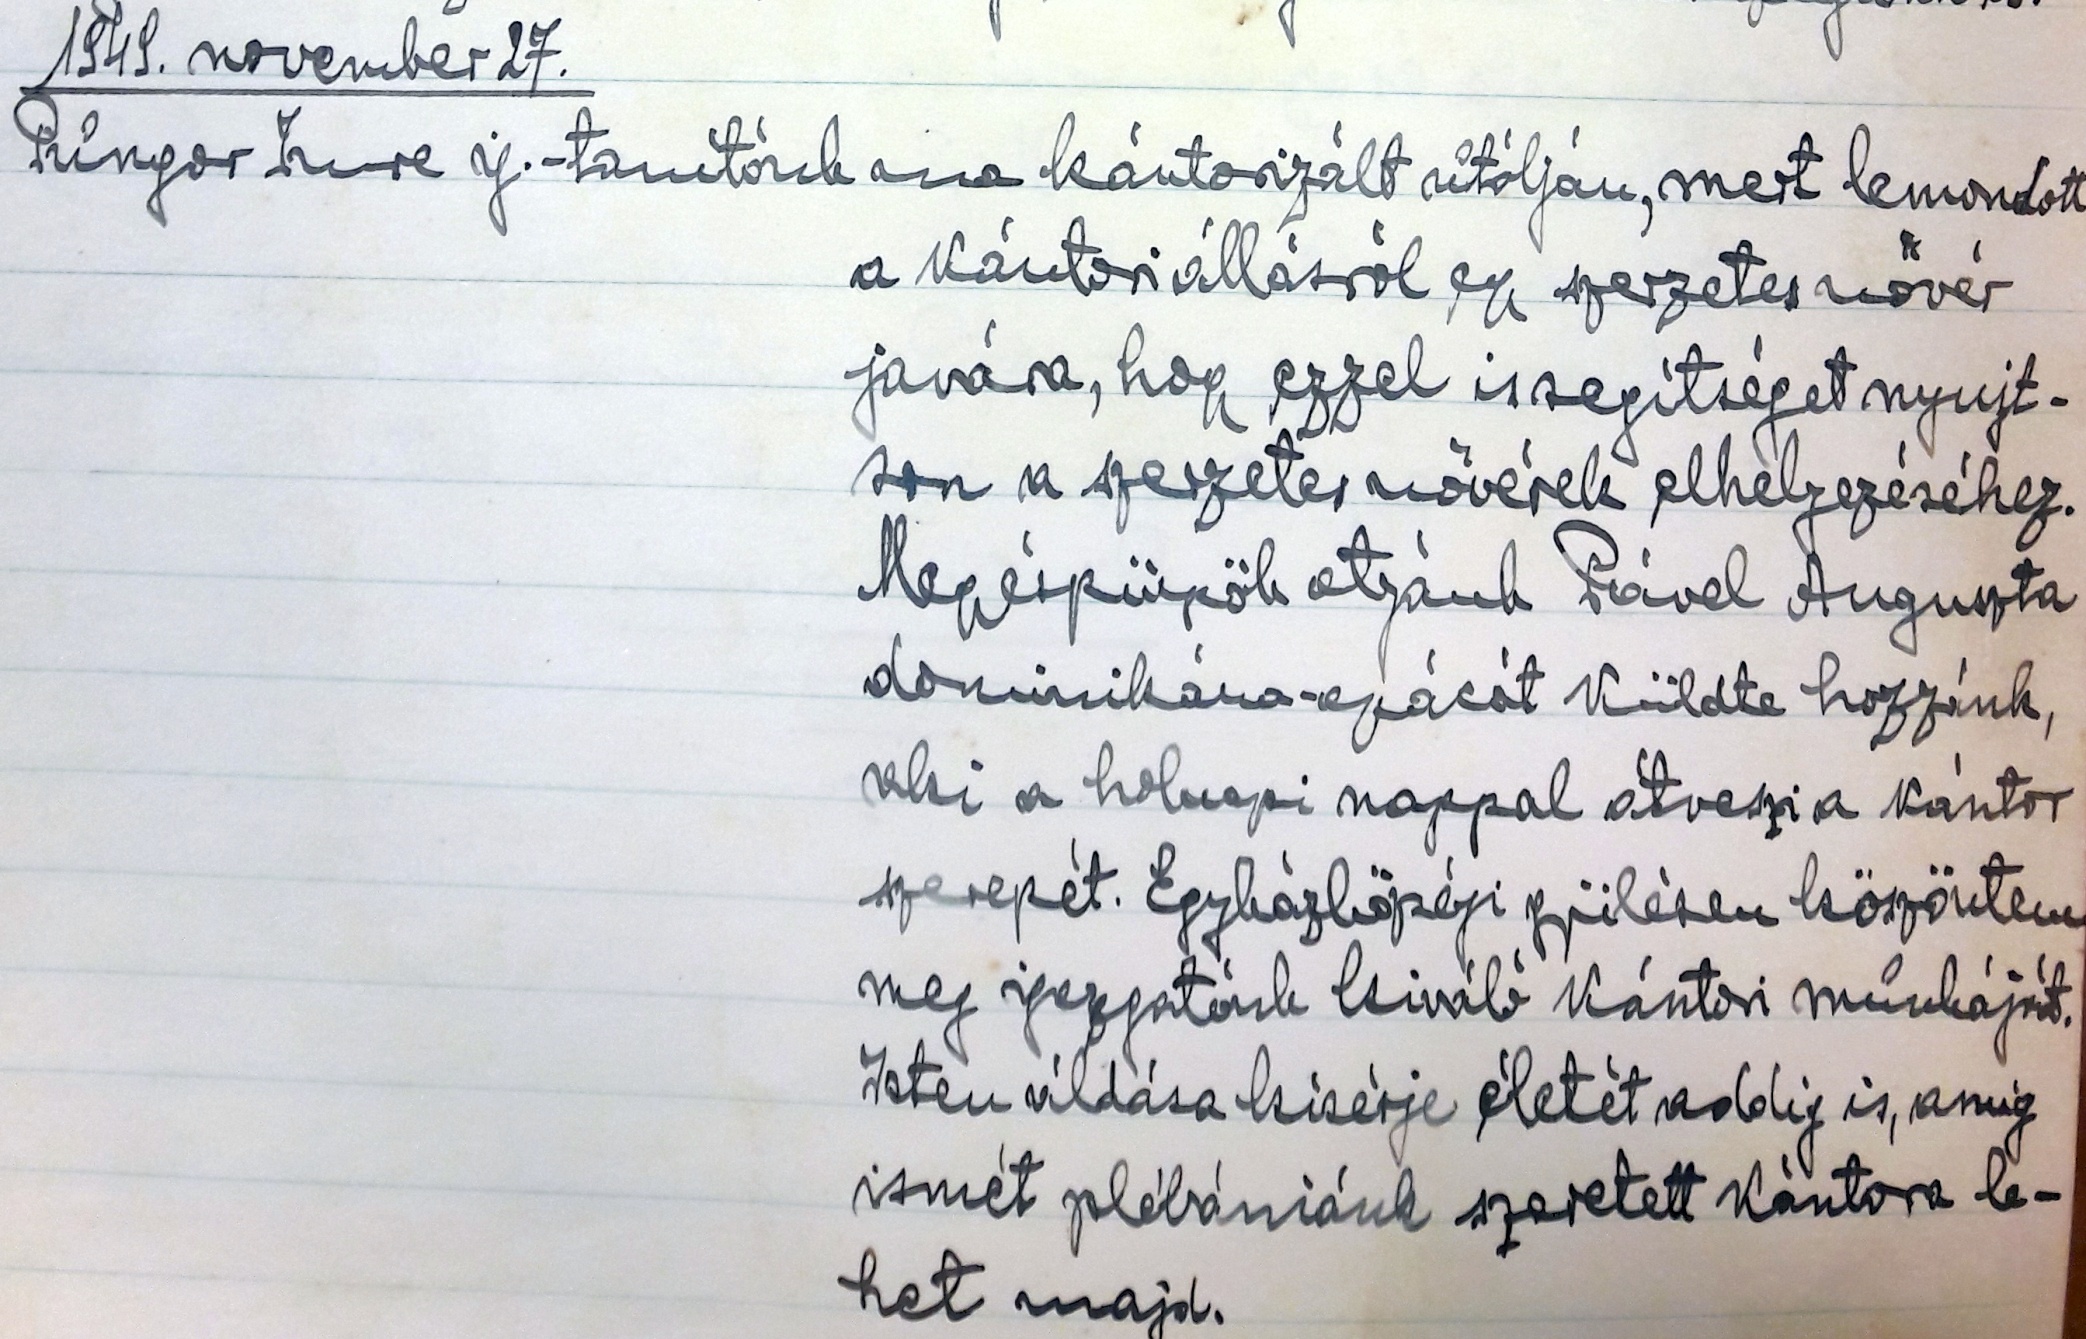 1949. november 27.
Pungor Imre ig.-tanitónk ma kántorizált utólján, mert lemondott
a kántori állásról egy szerzetes nővér
javára, hogy ezzel is segitséget nyujt-
son a szerzetes nővérek elhelyezéséhez.
Megyéspüspök atyánk Pável Auguszta
dominikána-apácát küldte hozzánk,
aki a holnapi nappal átveszi a kántor
szerepét. Egyházközségi gyülésen köszöntem
meg igazgatónk kiváló kántori munkáját.
Isten áldása kisérje életét addig is, amig
ismét plébániánk szeretett kántora le-
het majd.